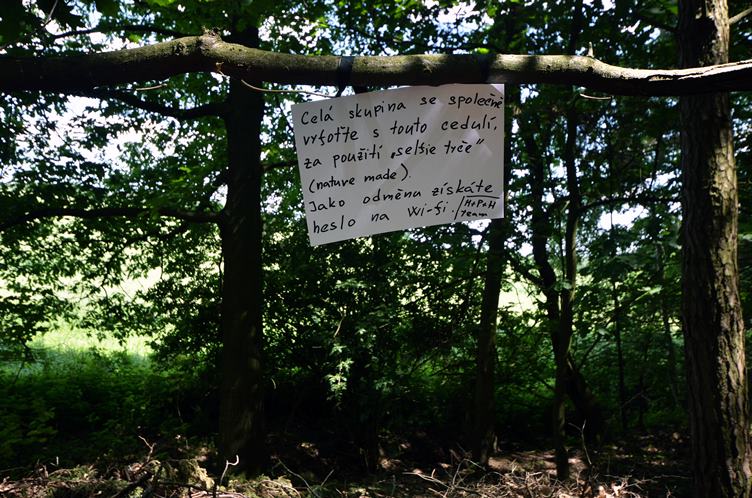 Celá skupina se společně
vyfoťte s touto cedulí,
za použití „selfie tyče"
(nature made).
Jako odměnu získáte
heslo na Wi-fi. / HaPaH
team